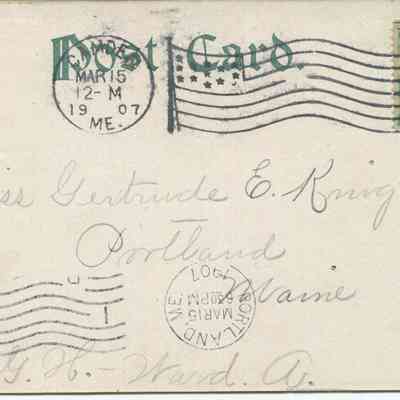 Post Card.
CAMDEN
MAR 15
12-M
1907
ME.
iss Gertrude E. Knig
Portland
Maine
PORTLAND, ME
MAR 15
630 PM
1907
G. H. - Ward. A.